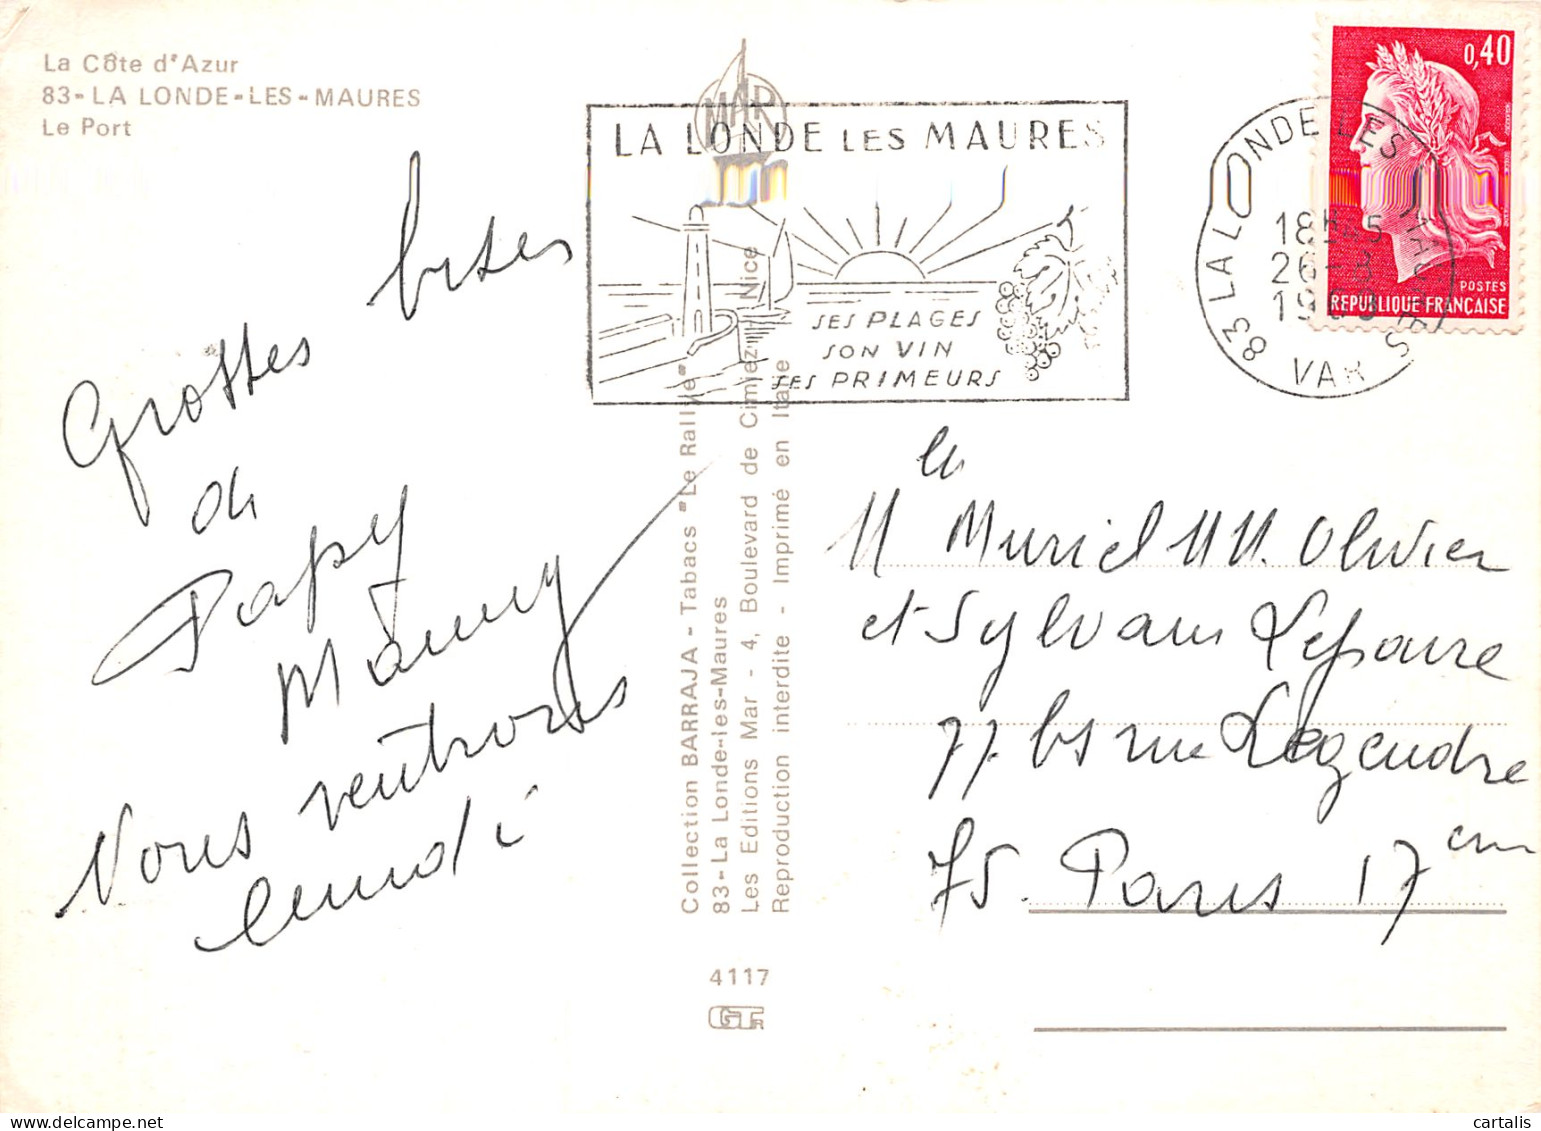 La Côte d'Azur
83-LA LONDE-LES-MAURES
Le Port
MAR
LA LONDE LES MAURES
SES PLAGES
SON VIN
SES PRIMEURS
83 LA LONDE LES MAURES
VAR
26
0,40
POSTES
REPUBLIQUE FRANÇAISE
Grosses bises
de
Papy
Mamy
Nous rentrons
lundi
Collection BARRAJA - Tabacs "Le Rallye"
83-La Londe-les-Maures
Les Editions Mar - 4, Boulevard de Cimiez - Nice
Reproduction interdite - Imprimé en Italie
4117
Muriel MM. Olivier
et Sylvain
77 bis rue Legendre
75. Paris 17 em
cartalis.com